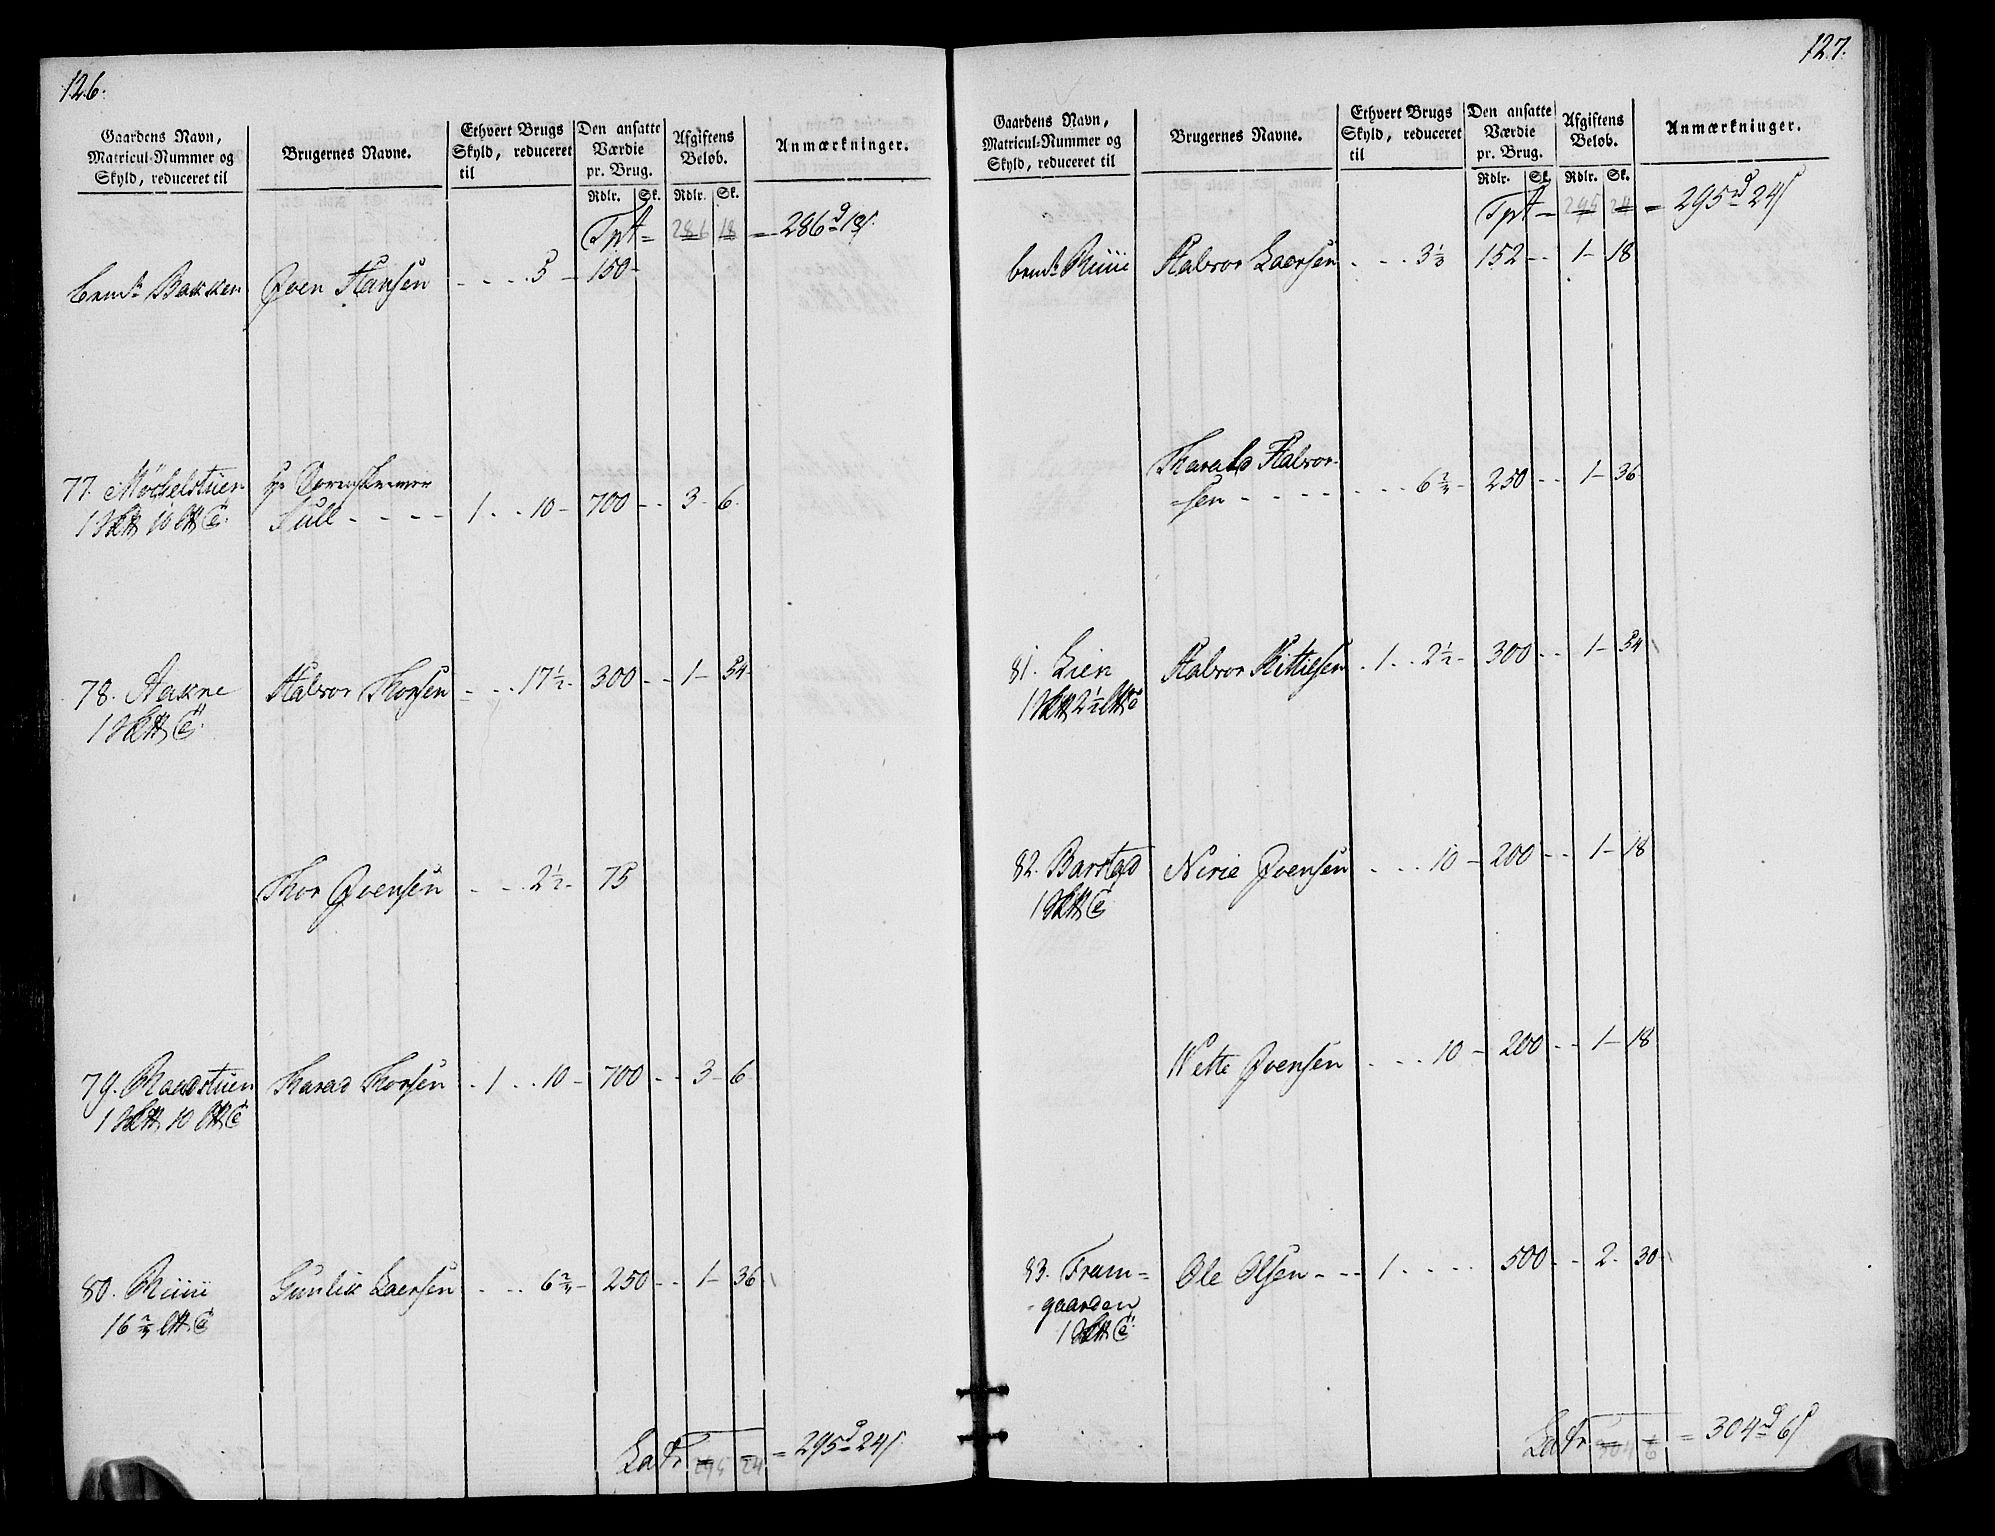 126.
Gaardens Navn,
Matricul-Nummer og
Skyld, reduceret til
Brugernes Navne.
Ethvert Brugs
Skyld, reduceret
til
Den ansatte
Værdie
pr. Brug.
Rdlr. Sk.
Afgiftens
Beløb.
Rdlr. Sk.
Anmærkninger.
Tpt = 286 18 = 286 d 18 s.
Bakken Hansen - - - . 5 - 150 -
77. Møchelstuen
1 10
Full - - - - 1 . . 10 - 700 - - 3 - 6.
78. Aakne Halvor Thorsen - - . . 17 1/2 - 300 - - 1 - 54 -
1
Thor Øvensen - - . 2 1/2 - 75
79. Raadstuen Tarad Thorsen . 1 . . 10 - 700 - - 3 - 6 -
1 10
80. Riiii Gunlik Laersen . . . 6 2/3 - 250 - - 1 - 36
16 2/3
Lat: 295 24 = 295 d 24 s.
127.
Gaardens Navn,
Matricul-Nummer og
Skyld, reduceret til
Brugernes Navne.
Ethvert Brugs
Skyld, reduceret
til
Den ansatte
Værdie
pr. Brug.
Rdlr. Sk.
Afgiftens
Beløb.
Rdlr. Sk.
Anmærkninger.
Tpt = 295 24 = 295 d 24 s
Riiii Halvor Laersen . - - 3 1/3 152 - - 1 - 18
Harald Halvor-
-sen - - - - - - - 6 2/3 - 250 - - 1 - 36
81. Lien Halvor Kittilsen . 1 . . 2 1/2 - 300 - - 1 - 54
1 2 1/2
82. Barstad Nirie Øvensen . . . 10 - 200 - - 1 - 18
1
Wette Øvensen . . . 10 - 200 - - 1 - 18
83. Fram=
-gaarden
1
Ole Olsen - - - 1 . . . . 500 - - 2 - 30
Lat: 304 6 = 304 d 6 s